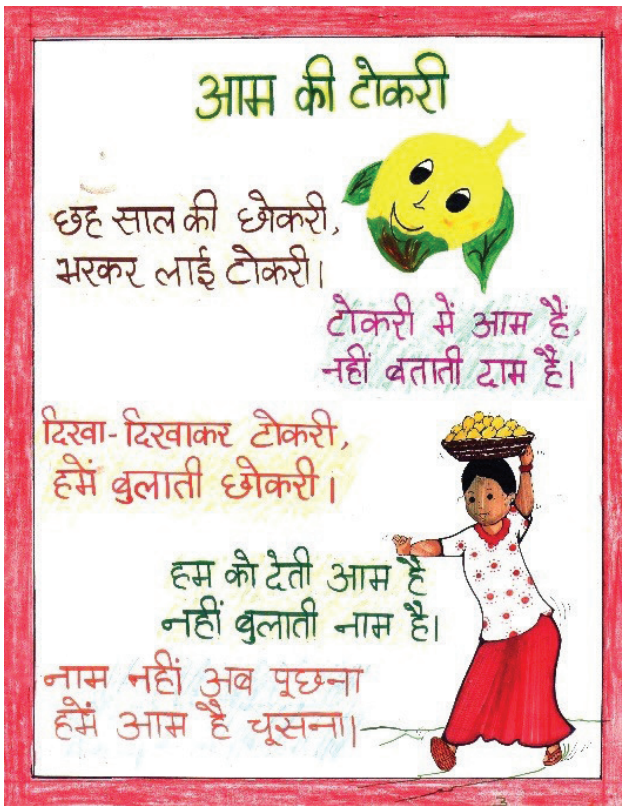 आम की टोकरी
छह साल की छोकरी,
भरकर लाई टोकरी।
टोकरी में आम हैं,
नहीं बताती दाम है।
दिखा-दिखाकर टोकरी,
हमें बुलाती छोकरी।
हम को देती आम है
नहीं बुलाती नाम है।
नाम नहीं अब पूछना
हमें आम है चूसना।